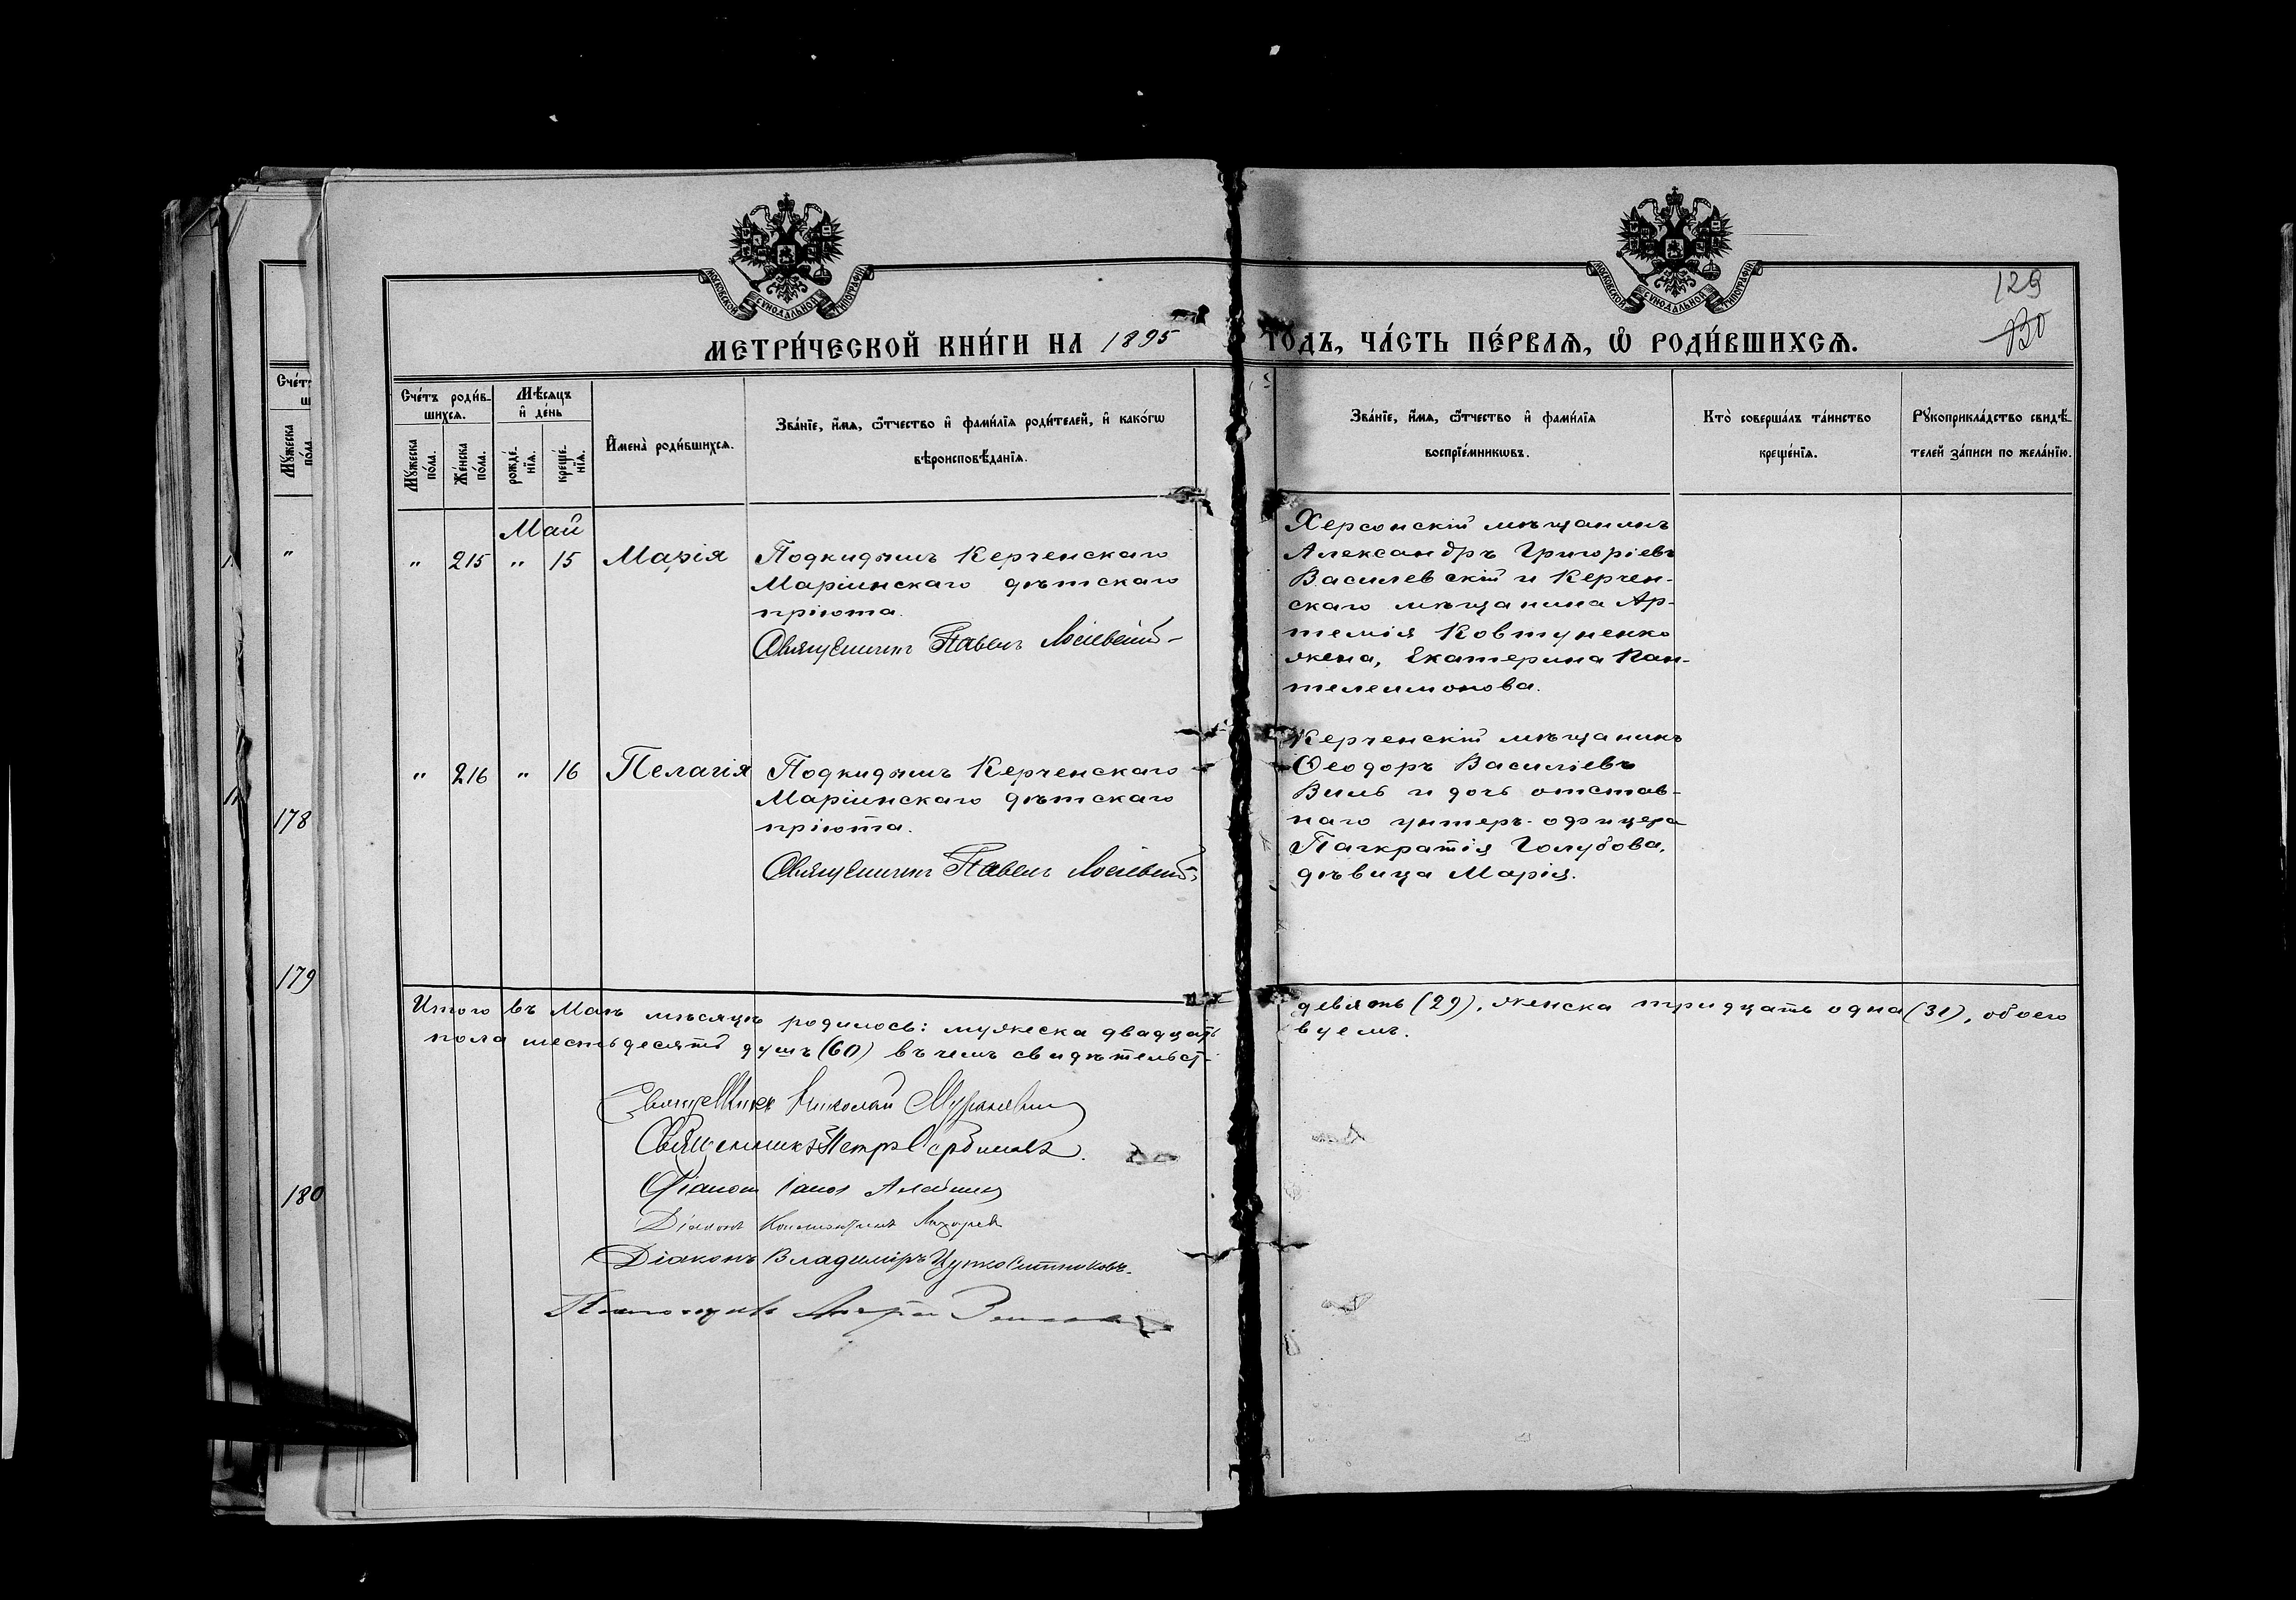 МОСКОВСКОЙ СѴНОДАЛЬНОЙ ТИПОГРАФІИ
МОСКОВСКОЙ СѴНОДАЛЬНОЙ ТИПОГРАФІИ
129
130
МЕТРИ́ЧЕСКОЙ КНИ́ГИ НА 1895 ГОДЪ, ЧА́СТЬ ПЕ́РВАѦ, Ѡ РОДИ́ВШИХСѦ.
Сче́тъ роди́в-
шихсѧ.
Мꙋ́жеска по́ла.
Же́нска по́ла.
Мѣ́сѧцъ
и҆ де́нь
рожде́-
нїѧ.
креще́-
нїѧ.
И҆мена̀ роди́вшихсѧ.
Зва́нїе, и҆́мѧ, ѻ҆́тчество и҆ фами́лїѧ роди́телей, и҆ како́гѡ
вѣроисповѣ́данїѧ.
Зва́нїе, и҆́мѧ, ѻ҆́тчество и҆ фами́лїѧ
воспрїе́мникѡвъ.
Кто̀ соверша́лъ та́инство
креще́нїѧ.
Рꙋкоприкла́дство свидѣ́-
телей за́писи по жела́нїю.
Май
" 215 " 15 Марія
Подкидышъ Керченскаго
Маріинскаго дѣтскаго
пріюта.
Священникъ Павелъ
Херсонскій мѣщанинъ
Александръ Григоріевъ
Василевскій и Керчен-
скаго мѣщанина Ар-
темія Ковтуненко
жена, Екатерина Пан-
телеимонова.
" 216 " 16 Пелагія
Подкидышъ Керченскаго
Маріинскаго дѣтскаго
пріюта.
Священникъ Павелъ
Керченскій мѣщанинъ
Ѳеодоръ Василіевъ
Виль и дочь отстав-
наго унтеръ-офицера
Панкратія Голубова,
дѣвица Марія.
Итого въ Маѣ мѣсяцѣ родилось: мужеска двадцать девять (29), женска тридцать одна (31), обоего
пола шестьдесятъ душъ (60) въ чемъ свидѣтельст-вуемъ.
Священникъ Николай
Священникъ Петръ Сербиновъ.
Діаконъ
Діаконъ Константинъ
Діаконъ Владиміръ
Псаломщикъ
178
179
180